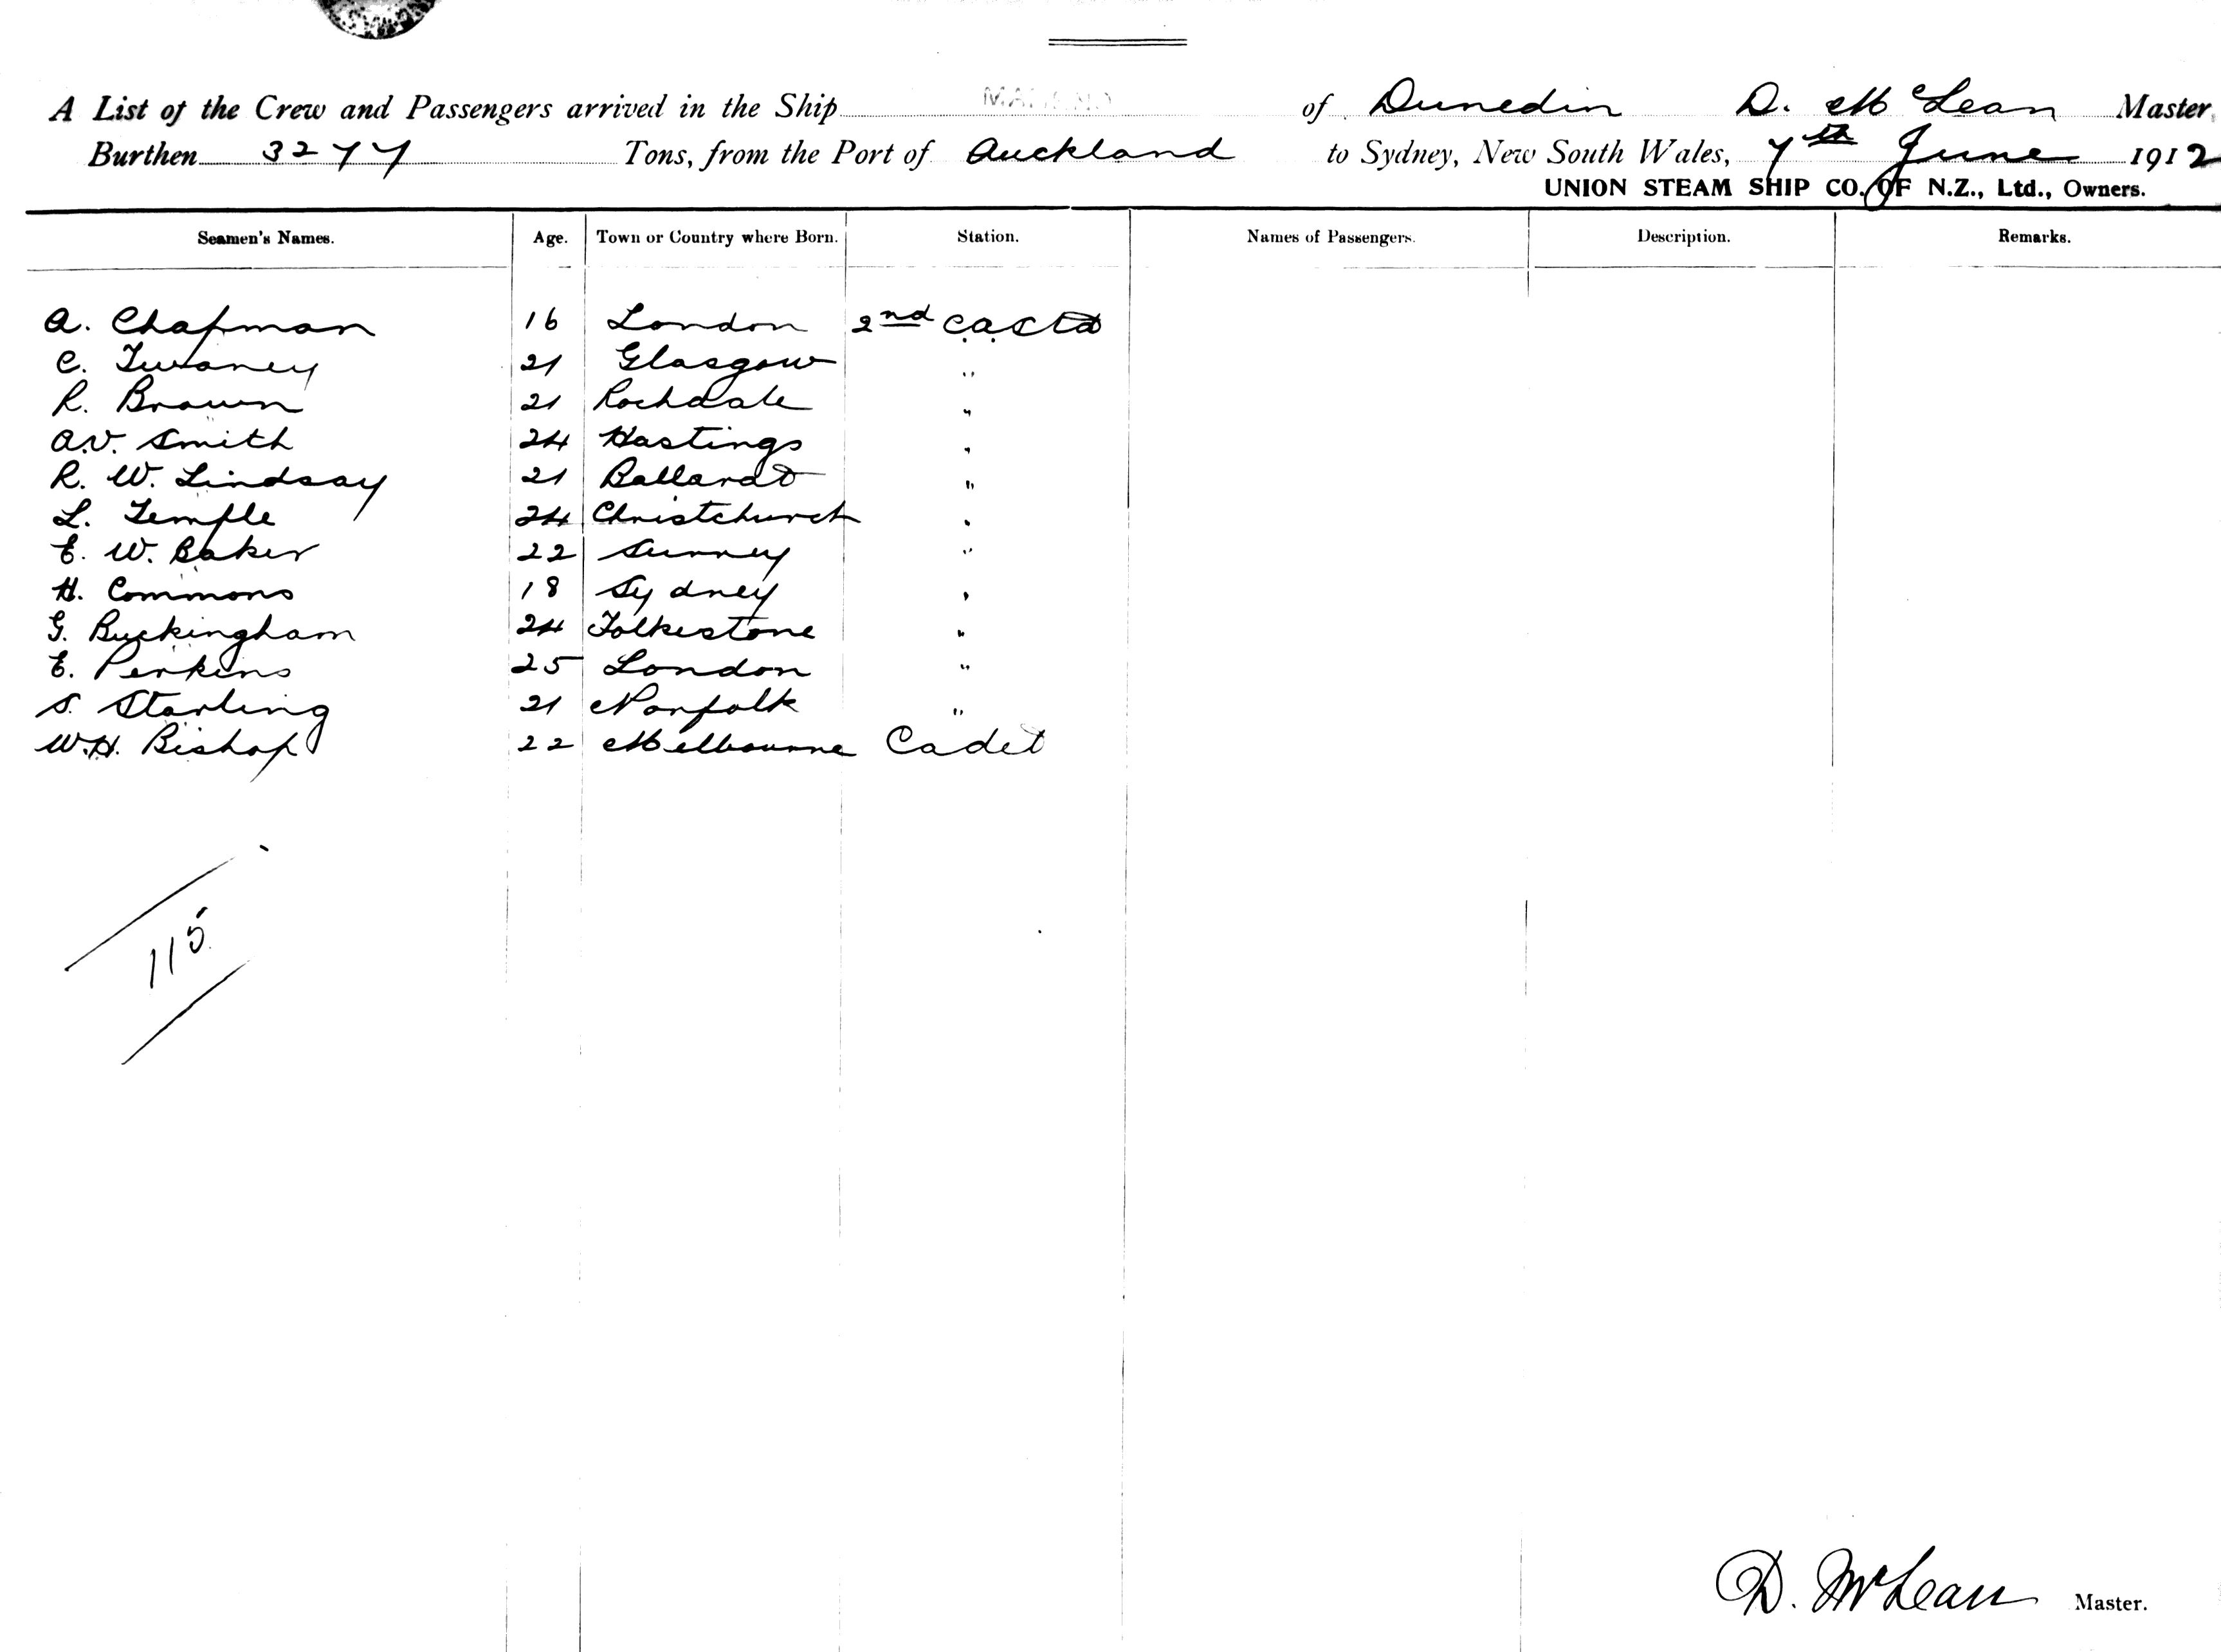 A List of the Crew and Passengers arrived in the Ship of Dunedin D. McLean Master
Burthen 3277 Tons, from the Port of Auckland to Sydney, New South Wales, 7th June 1912
UNION STEAM SHIP CO. OF N.Z., Ltd., Owners.
Seamen's Names. Age. Town or Country where Born. Station. Names of Passengers. Description. Remarks.
A. Chapman 16 London 2nd
C. Twaney 21 Glasgow "
R. Brown 21 Rochdale "
A.V. Smith 24 Hastings "
R. W. Lindsay 21 Ballarat "
L. Temple 24 Christchurch "
E. W. Baker 22 Surrey "
H. Commons 18 Sydney "
G. Buckingham 24 Folkestone "
E. Perkins 25 London "
S. Starling 21 Norfolk "
W.H. Bishop 22 Melbourne Cadet
115
D. McLean Master.